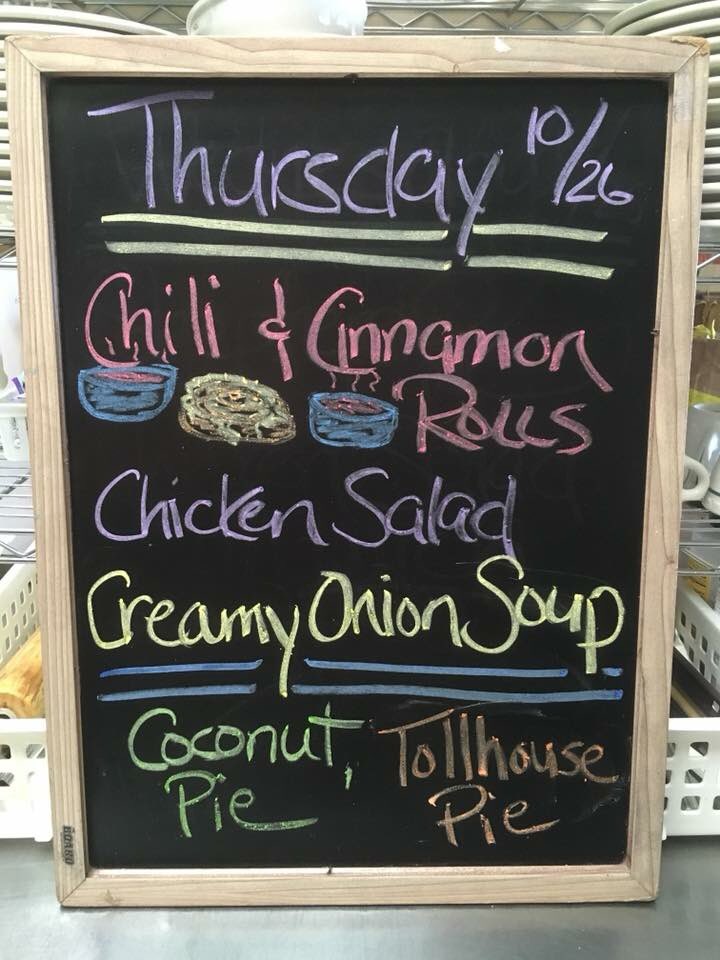 Thursday 10/26
Chili & Cinnamon
Rolls
Chicken Salad
Creamy Onion Soup
Coconut, Tollhouse
Pie Pie